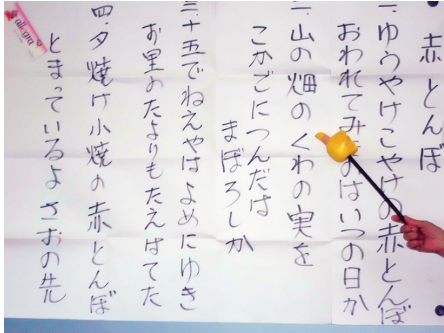 赤とんぼ
一.ゆうやけこやけの赤とんぼ
おわれてみ のはいつの日か
二.山の畑のくわの実を
こかごにつんだは
まぼろしか
三.十五でねえやはよめにゆき
お里のたよりもたえはてた
四.夕焼け小焼の赤とんぼ
とまっているよさおの先